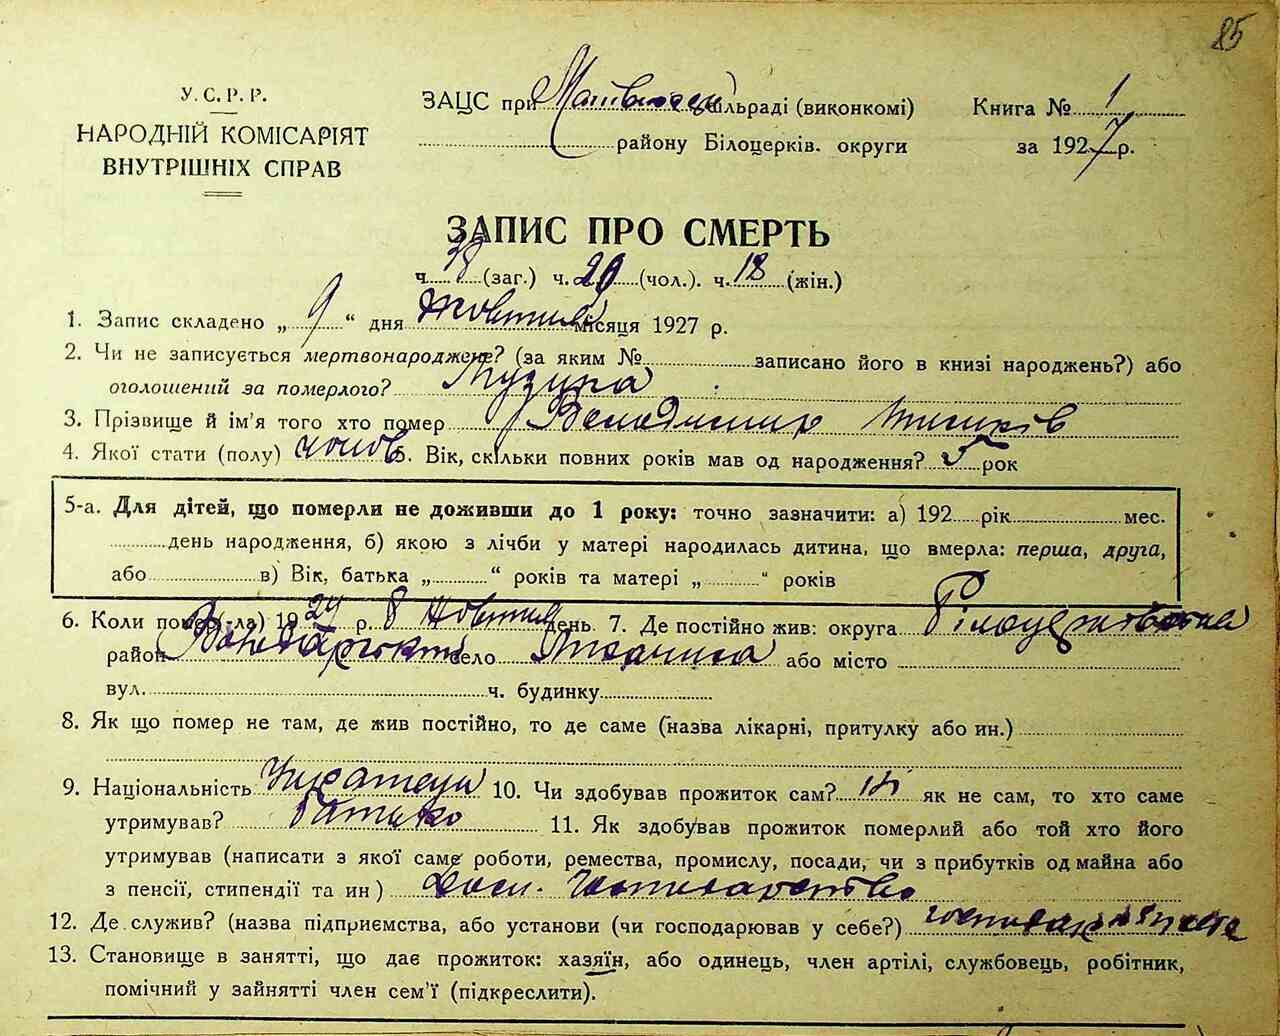 85
У. С. Р. Р.
НАРОДНІЙ КОМІСАРІЯТ
ВНУТРІШНІХ СПРАВ
ЗАЦС при сільраді (виконкомі)
району Білоцерків. округи
Книга № 1
за 1927 р.
ЗАПИС ПРО СМЕРТЬ
ч. 38 (заг.) ч. 20 (чол.). ч. 18 (жін.)
1. Запис складено „ 9 “ дня Жовтня місяця 1927 р.
2. Чи не записується мертвонароджене? (за яким № записано його в книзі народжень?) або
оголошений за померлого?
3. Прізвище й ім'я того хто помер Музика Володимир
4. Якої стати (полу) чолов 5. Вік, скільки повних років мав од народження? 5 рок
5-а. Для дітей, що померли не доживши до 1 року: точно зазначити: а) 192 рік мес.
день народження, б) якою з лічби у матері народилась дитина, що вмерла: перша, друга,
або в) Вік, батька „ “ років та матері „ “ років
6. Коли помер(-ла) 19 р. 8 жовтня день 7. Де постійно жив: округа Білоцерковска
район село або місто
вул. ч. будинку
8. Як що помер не там, де жив постійно, то де саме (назва лікарні, притулку або ин.)
9. Національність 10. Чи здобував прожиток сам? ні як не сам, то хто саме
утримував? Батько 11. Як здобував прожиток померлий або той хто його
утримував (написати з якої саме роботи, ремества, промислу, посади, чи з прибутків од майна або
з пенсії, стипендії та ин ) господарство
12. Де служив? (назва підприємства, або установи (чи господарював у себе?)
13. Становище в занятті, що дає прожиток: хазяїн, або одинець, член артілі, службовець, робітник,
помічний у зайнятті член сем'ї (підкреслити).